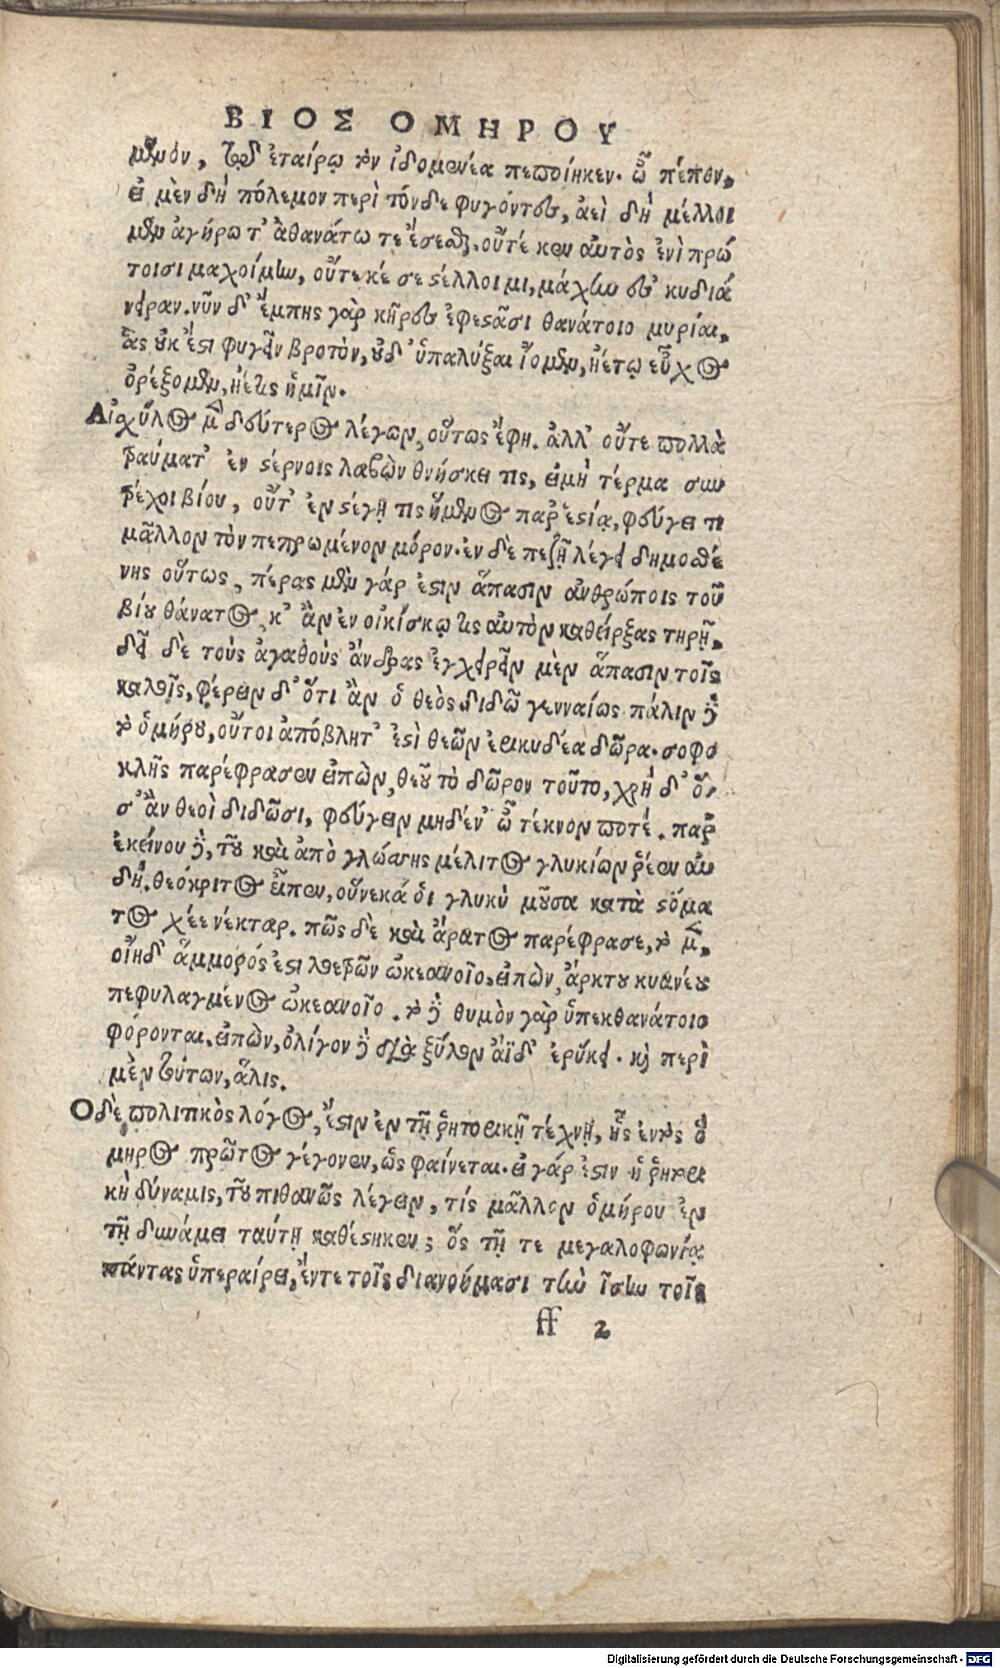 ΒΙΟΣ ΟΜΗΡΟΥ
μενον, τῷ δ' ἑταίρῳ τὸν ἰδομενέα πεποίηκεν. ὦ πέπον,
εἰ μὲν δὴ πόλεμον περὶ τόνδε φυγόντες, ἀεὶ δὴ μέλλοι
μεν ἀγήρω τ' ἀθανάτω τε ἔσεσθαι. οὔτέ κεν αὐτὸς ἐνὶ πρώ
τοισι μαχοίμην, οὔτε κέ σε στέλλοιμι, μάχην ἐς κυδιά
νειραν. νῦν δ' ἔμπης γὰρ κῆρες ἐφεστᾶσι θανάτοιο μυρίαι,
ἃς οὐκ ἔστι φυγεῖν βροτὸν, οὐδ' ὑπαλύξαι ἴομεν, ἠέ τῳ εὖχος
ὀρέξομεν, ἠέ τις ἡμῖν.
Αἰσχύλος μὲν δεύτερος λέγων, οὕτως ἔφη. ἀλλ' οὔτε πολλὰ
τραύματ' ἐν στέρνοις λαβὼν θνήσκει τις, εἰ μὴ τέρμα συν
τρέχοι βίου, οὔτ' ἐν στέγῃ τις ἥμενος παρ' ἑστίᾳ, φεύγει τι
μᾶλλον τὸν πεπρωμένον μόρον. ἐν δὲ πεζῇ λέγει δημοσθέ
νης οὕτως, πέρας μὲν γάρ ἐστιν ἅπασιν ἀνθρώποις τοῦ
βίου θάνατος, κ' ἂν ἐν οἰκίσκῳ τις αὐτὸν καθείρξας τηρῇ,
δεῖ δὲ τοὺς ἀγαθοὺς ἄνδρας ἐγχειρεῖν μὲν ἅπασιν τοῖς
καλοῖς, φέρειν δ' ὅτι ἂν ὁ θεὸς διδῶ γενναίως. πάλιν δὲ
τοῦ ὁμήρου, οὔτοι ἀπόβλητ' ἐστὶ θεῶν ἐρικυδέα δῶρα. σοφο
κλῆς παρέφρασεν εἰπὼν, θεοῦ τὸ δῶρον τοῦτο, χρὴ δ' ὅ,
σ' ἂν θεοὶ διδῶσι, φεύγειν μηδέν' ὦ τέκνον ποτέ. παρ'
ἐκείνου δὲ, τοῦ καὶ ἀπὸ γλώσσης μέλιτος γλυκίων ῥέεν αὐ
δή. θεόκριτος εἶπεν, οὕνεκά ὁι γλυκὺ μοῦσα κατὰ στόμα
τος χέε νέκταρ. πῶς δὲ καὶ ἄρατος παρέφρασε, τὸ μὲν,
οἴη δ' ἄμμορός ἐστι λοετρῶν ὠκεανοῖο, εἰπὼν, ἄρκτου κυανέου
πεφυλαγμένος ὠκεανοῖο. τὸ δὲ θυμὸν γὰρ ὑπεκθανάτοιο
φόρονται. εἰπὼν, ὀλίγον δὲ διὰ ξύλον ἄϊδ' ἐρύκει. καὶ περὶ
μὲν τούτων, ἅλις.
Ο δὲ, πολιτικὸς λόγος, ἔστιν ἐν τῇ ῥητορικῇ τέχνῃ, ἧς ἐντὸς ὅ
μηρος πρῶτος γέγονεν, ὡς φαίνεται. εἰ γάρ ἐστιν ἡ ῥητορι
κὴ δύναμις, τοῦ πιθανῶς λέγειν, τίς μᾶλλον ὁμήρου ἐν
τῇ δυνάμει ταύτῃ καθέστηκεν; ὃς τῇ τε μεγαλοφωνίᾳ
πάντας ὑπεραίρει, ἔν τε τοῖς διανοήμασι τὴν ἴσην τοῖς
ff 2
Digitalisierung gefördert durch die Deutsche Forschungsgemeinschaft - DFG